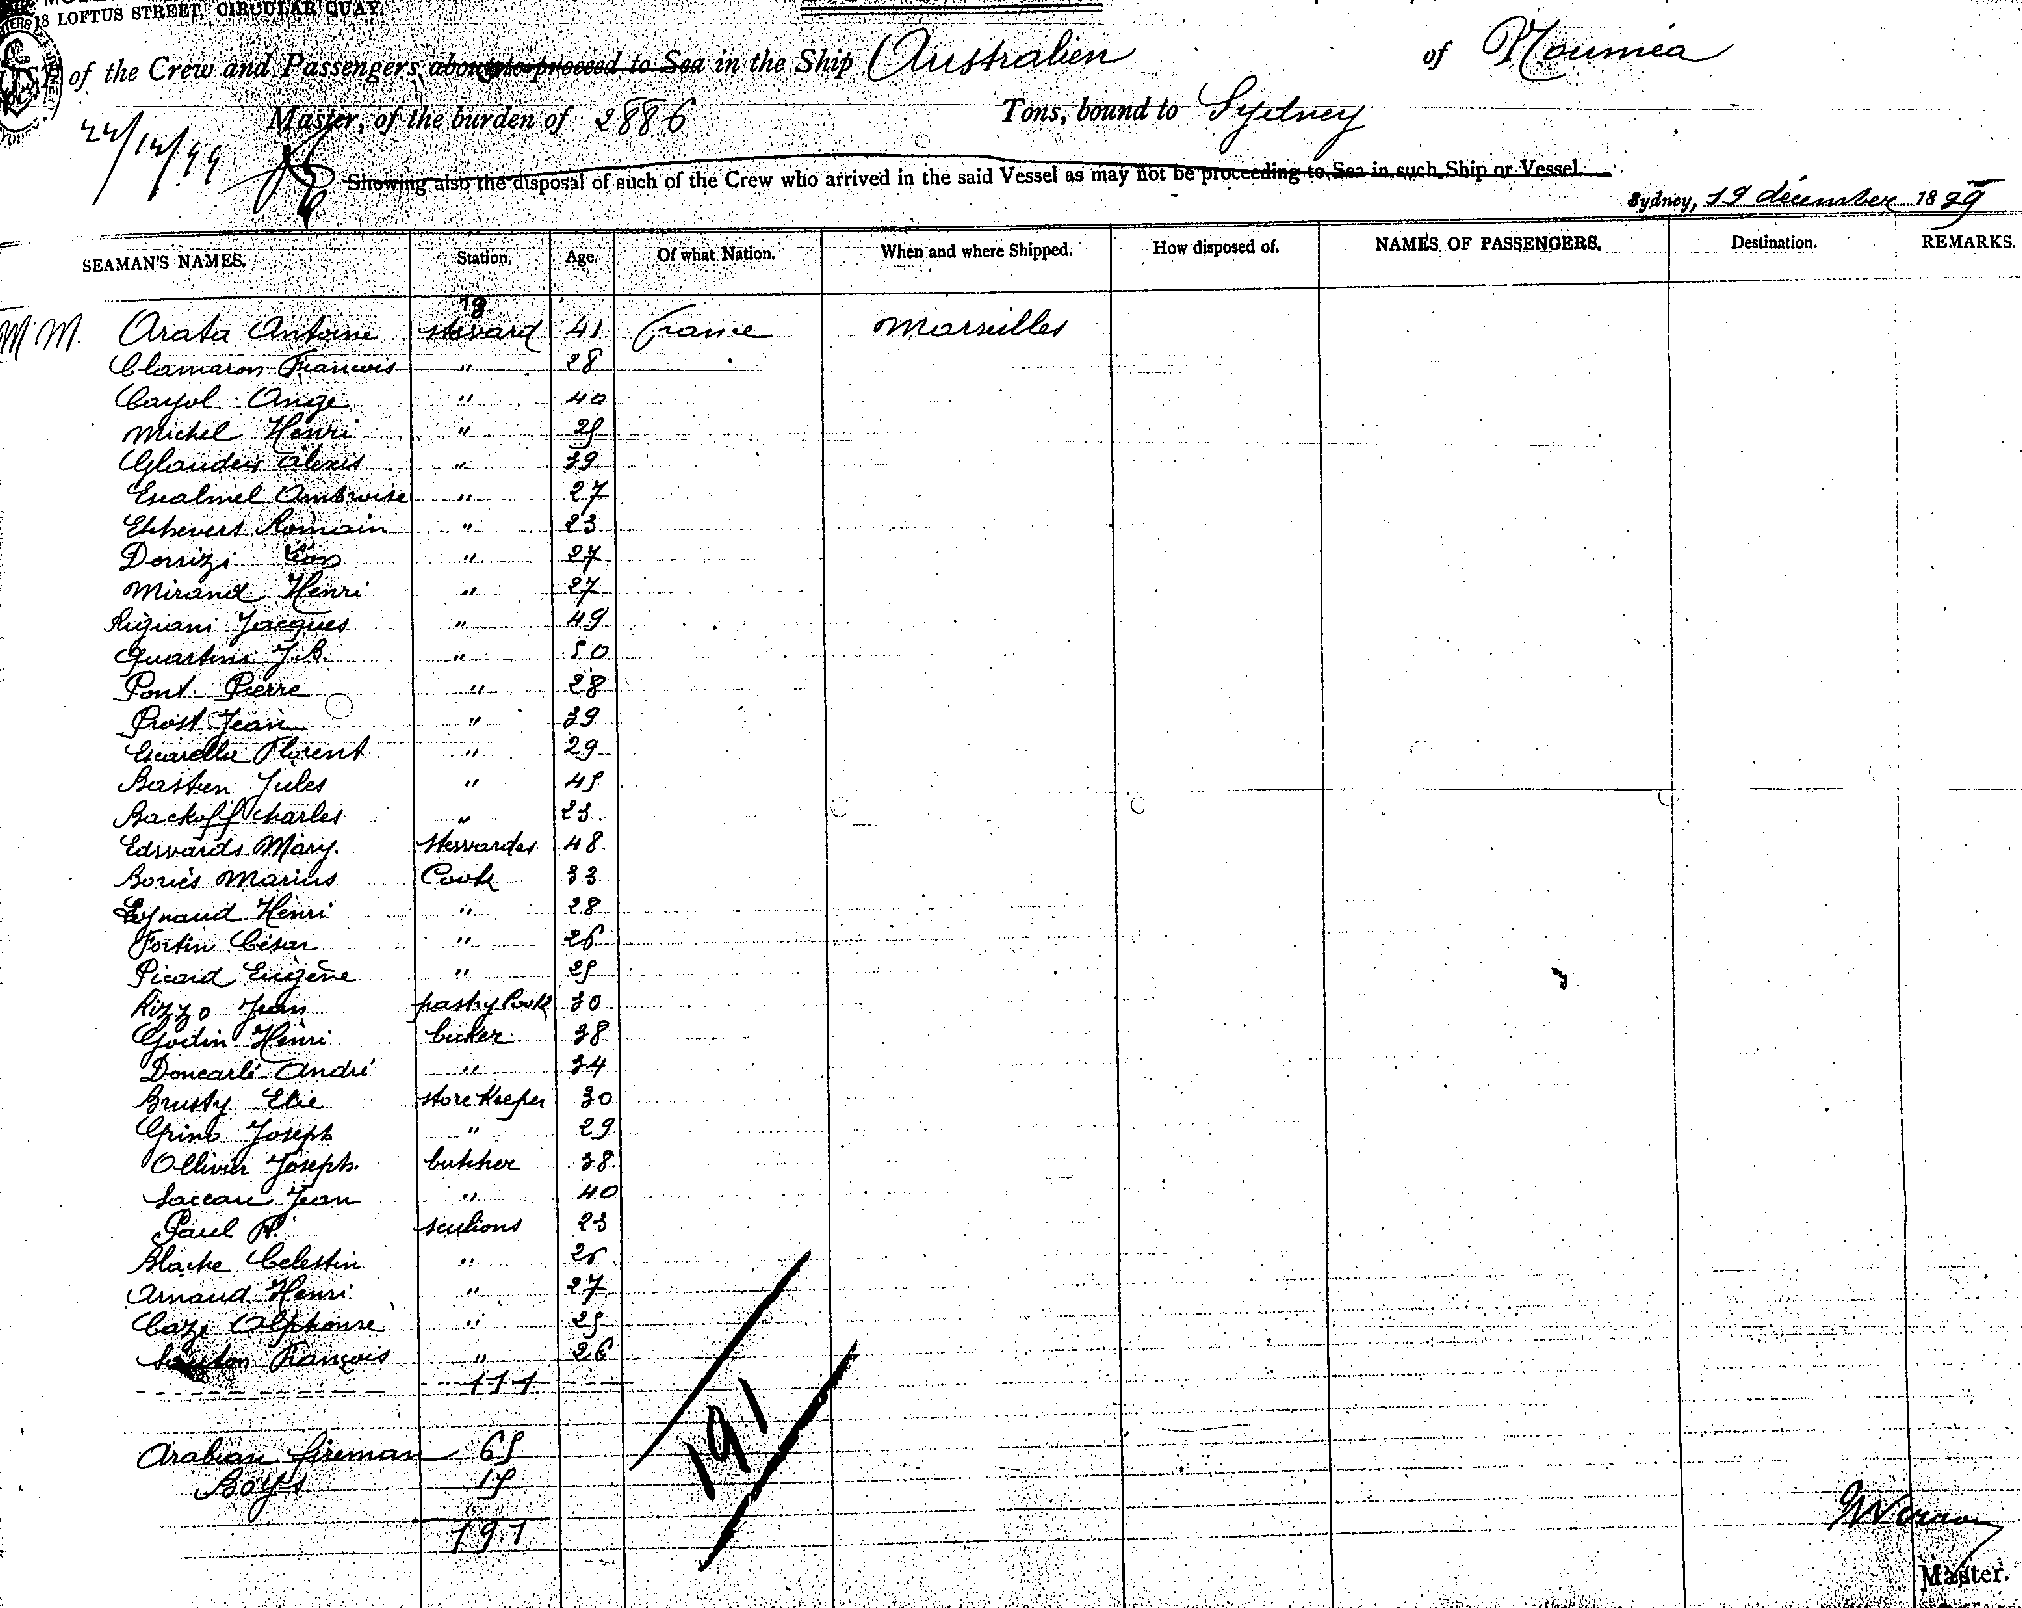 18 LOFTUS STREET, CIRCULAR QUAY
of the Crew and Passengers about to proceed to Sea in the Ship Australien of Noumea
Master, of the burden of 2886 Tons, bound to Sydney
22/12/99
Showing also the disposal of such of the Crew who arrived in the said Vessel as may not be proceeding to Sea in such Ship or Vessel.
Sydney, 19 décember 1899
SEAMAN'S NAMES. Station. Age. Of what Nation. When and where Shipped. How disposed of. NAMES OF PASSENGERS. Destination. REMARKS.
M.M. Arata Antoine steward 41 france Marseilles
Clamaron Francois " 28
Cayol Ange " 40
Michel Henri " 25
Glaudex Alexis " 39
Escalmel Ambroise " 27
Etchevers Romain " 23
Léon " 27
Mirand Henri " 27
Rigiani Jacques " 49
Quartini J.B. " 50
Pont Pierre " 28
Prost Jean " 39
Escarella Florent " 29
Bastien Jules " 45
Backoff Charles " 23
Edwards Mary stewardes 48
Boriés Marius Cook 33
Henri " 28
Fortin César " 26
Picard Eugène " 25
Rizzo Jean pastry Cook 30
Godin Henri 38
Doncarli André " 34
Brusty Elie store Keeper 30
Joseph " 29
Ollivier Joseph butcher 38
Jean " 40
Paul scullions 23
Blache Celestin " 26
Arnaud Henri " 27
Caze Alphonse " 25
François " 26
111
Arabian fireman 65
Boys 15
191
191
Master.